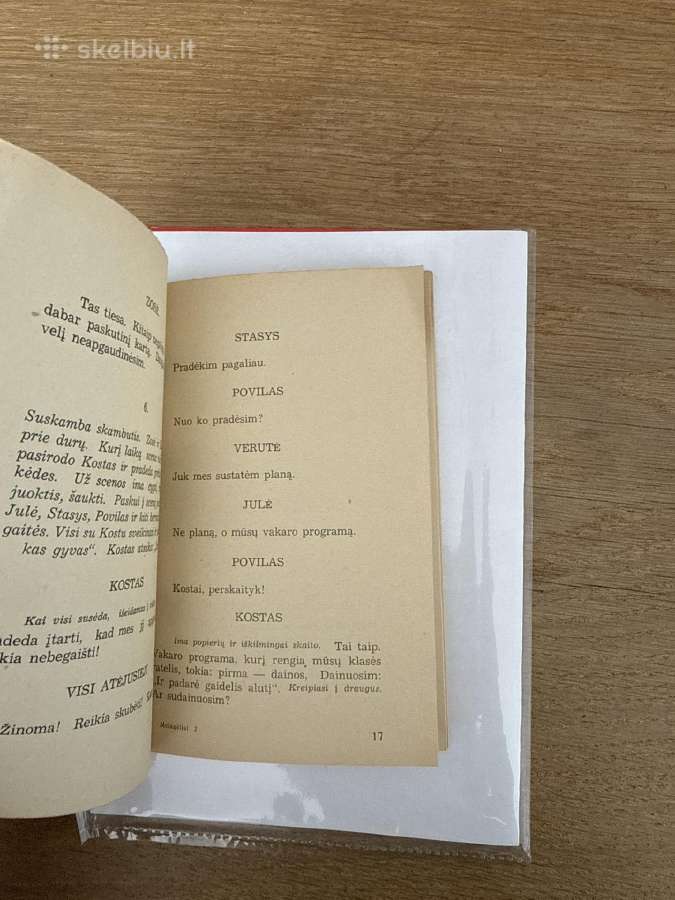 skelbiu.lt
ZOSĖ
Tas tiesa. Kitaip
dabar paskutinį kartą.
velį neapgaudinėsim.
6.
Suskamba skambutis.
prie durų. Kurį laiką scena
pasirodo Kostas ir pradeda
kėdes. Už scenos ima
juoktis, šaukti. Paskui į sceną
Julė, Stasys, Povilas ir
gaitės. Visi su Kostu
kas gyvas“. Kostas
KOSTAS
Kai visi susėda,
deda įtarti, kad mes jį
kia nebegaišti!
VISI ATĖJUSIEJI
Žinoma! Reikia skubėti!
STASYS
Pradėkim pagaliau.
POVILAS
Nuo ko pradėsim?
VERUTĖ
Juk mes sustatėm planą.
JULĖ
Ne planą, o mūsų vakaro programą.
POVILAS
Kostai, perskaityk!
KOSTAS
ima popierių ir iškilmingai skaito. Tai taip.
Vakaro programa, kurį rengia mūsų klasės
ratelis, tokia: pirma — dainos, Dainuosim:
„Ir padarė gaidelis alutį“. Kreipiasi į draugus.
Ar sudainuosim?
2
17